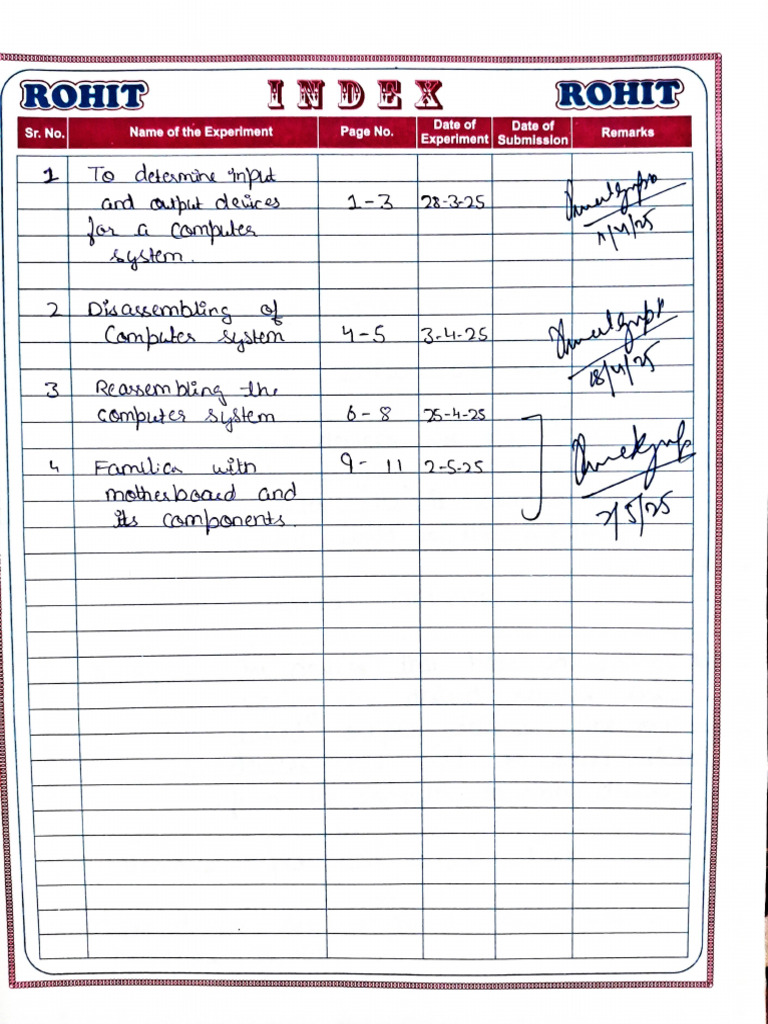 ROHIT INDEX ROHIT
Sr. No. Name of the Experiment Page No. Date of Experiment Date of Submission Remarks
1 To determine input
and output devices 1-3 28-3-25
for a computer
system.
2 Disassembling of
Computer system 4-5 3-4-25
18/4/25
3 Reassembling the
computer system 6-8 25-4-25
4 Familiar with 9-11 2-5-25
motherboard and
its components.
2/5/25